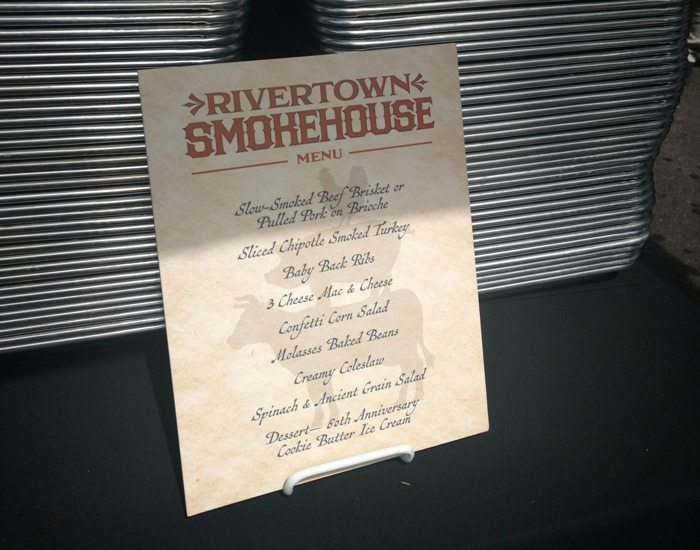 RIVERTOWN
SMOKEHOUSE
MENU
Slow-Smoked Beef Brisket or
Pulled Pork on Brioche
Sliced Chipotle Smoked Turkey
Baby Back Ribs
3 Cheese Mac & Cheese
Confetti Corn Salad
Molasses Baked Beans
Creamy Coleslaw
Spinach & Ancient Grain Salad
Dessert— 60th Anniversary
Cookie Butter Ice Cream